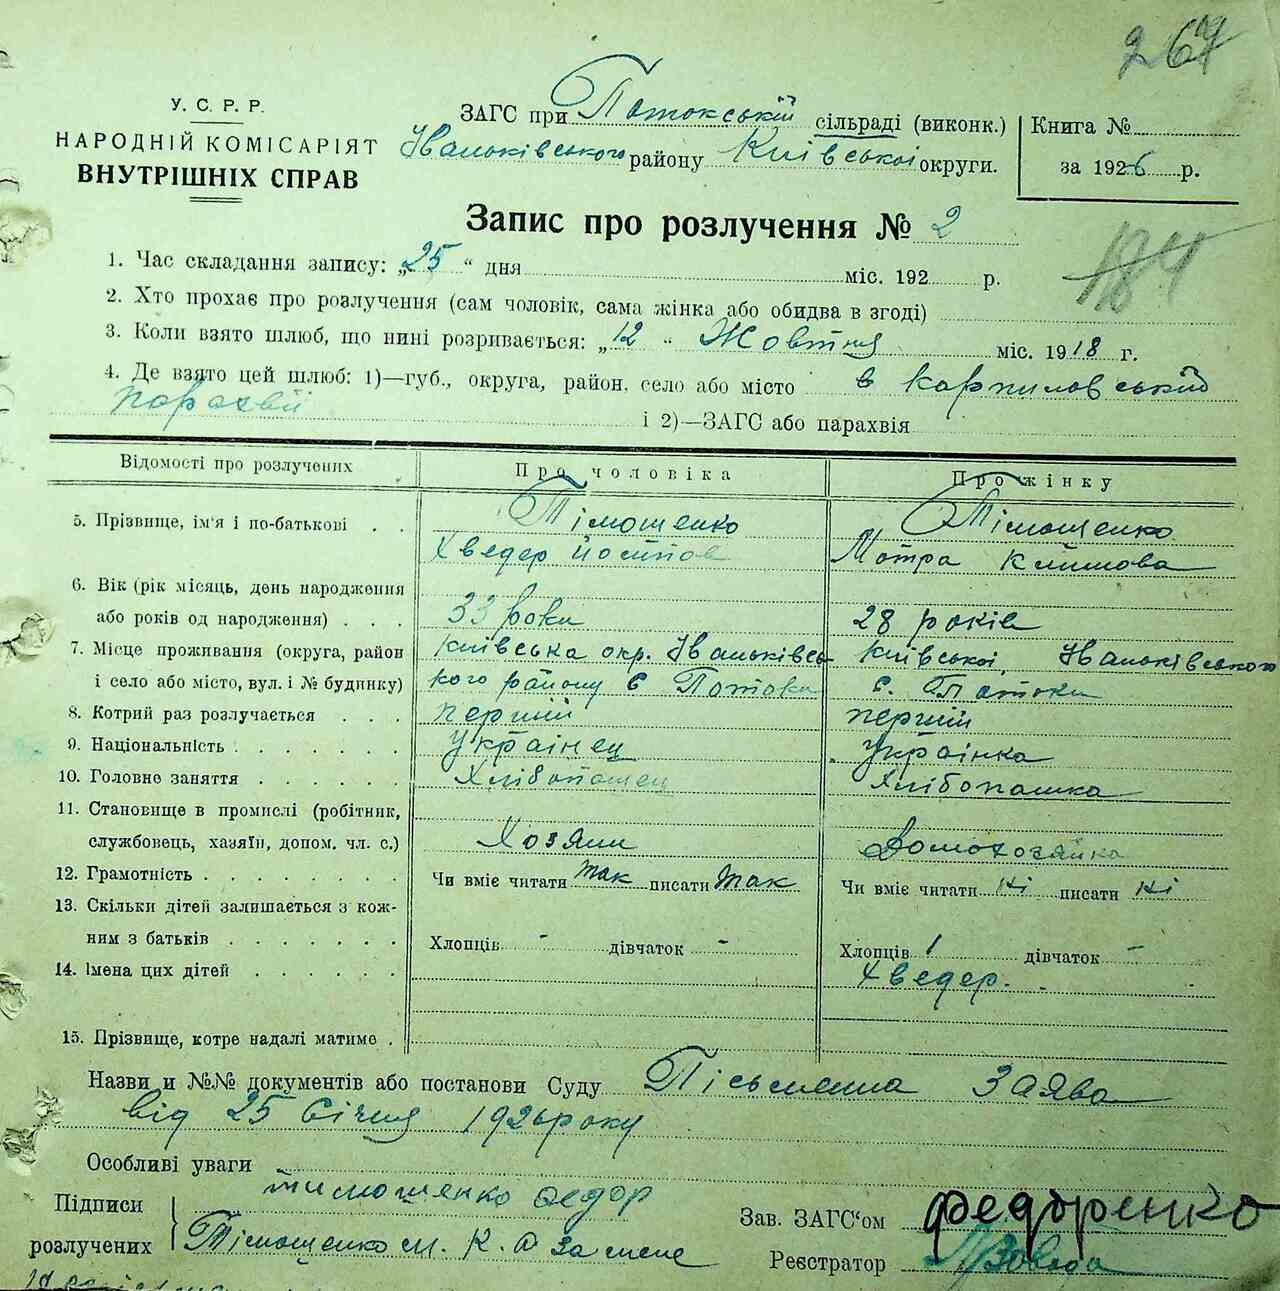 267
У. С. Р. Р.
НАРОДНІЙ КОМІСАРІЯТ
ВНУТРІШНІХ СПРАВ
ЗАГС при Потокській сільраді (виконк.)
Іваньківського району Київської округи.
Книга №
за 1926 р.
Запис про розлучення № 2
184
1. Час складання запису: „25“ дня міс. 192 р.
2. Хто прохає про розлучення (сам чоловік, сама жінка або обидва в згоді)
3. Коли взято шлюб, що нині розривається: „12“ Жовтня міс. 1918 г.
4. Де взято цей шлюб: 1)—губ., округа, район, село або місто в карпиловській
парахвії і 2)—ЗАГС або парахвія
Відомості про розлучених Про чоловіка Про жінку
5. Прізвище, ім'я і по-батькові Тімошенко Тімошенко
Хведер Мотра Климова
6. Вік (рік місяць, день народження
або років од народження) 33 роки 28 років
7. Місце проживання (округа, район Київська окр. Іваньківсь- Київської, Іваньківського
і село або місто, вул. і № будинку) кого району с Потоки с. Потоки
8. Котрий раз розлучається перший перший
9. Національність Українец Українка
10. Головне заняття Хлібопашец Хлібопашка
11. Становище в промислі (робітник,
службовець, хазяїн, допом. чл. с.) Хозяин Домохозяйка
12. Грамотність Чи вміє читати так писати так Чи вміє читати ні писати ні
13. Скільки дітей залишається з кож-
ним з батьків Хлопців - дівчаток - Хлопців 1 дівчаток -
14. Імена цих дітей Хведер.
15. Прізвище, котре надалі матиме
Назви и №№ документів або постанови Суду Пісьменна заява
від 25 Січня 1926 року
Особливі уваги
Підписи
розлучених
тимошенко федор
Тімошенко м. К. а за мене
Зав. ЗАГС'ом Федоренко
Реєстратор